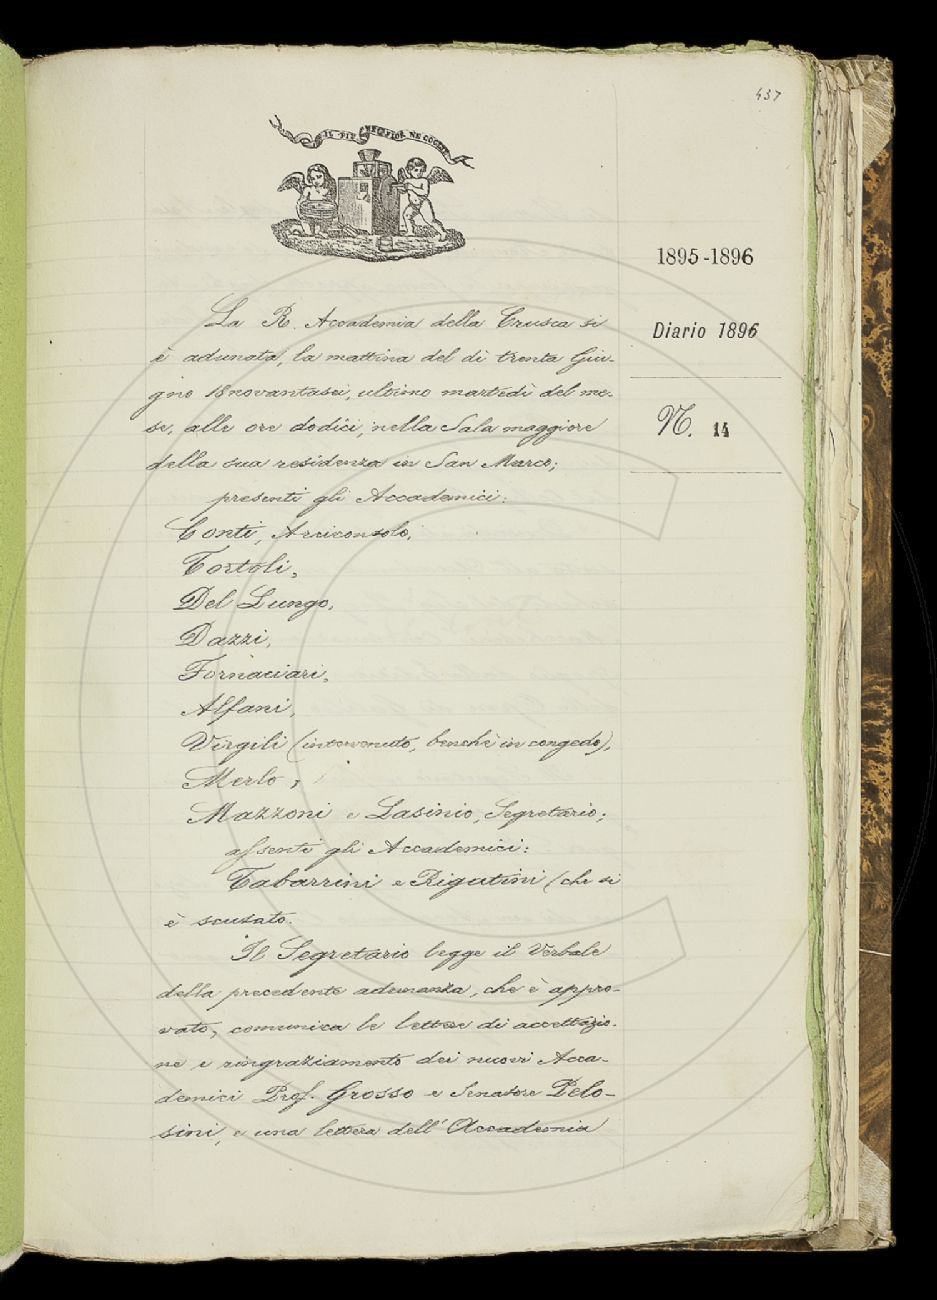 437
IL PIÙ BEL FIOR NE COGLIE
1895-1896
Diario 1896
N. 14
La R. Accademia della Crusca si
è adunata, la mattina del dì trenta Giu-
gno 18novantasei, ultimo martedì del me-
se, alle ore dodici, nella Sala maggiore
della sua residenza in San Marco;
presenti gli Accademici:
Conti, Arciconsolo,
Tortoli,
Del Lungo,
Dazzi,
Fornaciari,
Alfani,
Virgili (intervenuto, benchè in congedo),
Merlo,
Mazzoni e Lasinio, Segretario;
assenti gli Accademici:
Tabarrini e Rigutini (che si
è scusato.
Il Segretario legge il Verbale
della precedente adunanza, che è appro-
vato, comunica le lettere di accettazio-
ne e ringraziamento dei nuovi Acca-
demici Prof. Grosso e Senatore Pelo-
sini, e una lettera dell'Accademia